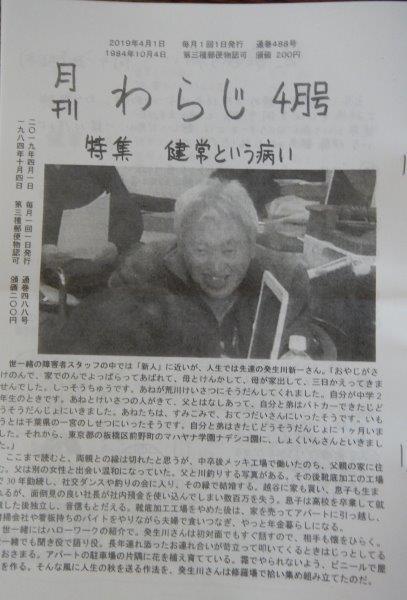 2019年4月1日　毎月1回1日発行　通巻488号
1984年10月4日　第三種郵便物認可　頒価 200円
月刊 わらじ 4月号
特集 健常という病い
二〇一九年四月一日　毎月一回一日発行　通巻四八八号
一九八四年十月四日　第三種郵便物認可　頒価二〇〇円
世一緒の障害者スタッフの中では「新人」に近いが、人生では先達の発生川新一さん。「おやじがさ
けのんで、家でのんでよっぱらってあばれて、母とけんかして、母が家出して、三日かえってきま
せんでした。しっそうちゅうです。あねが荒川けいさつにそうだんしてくれました。自分が中学2
年生のときです。あねとけいさつの人がきて、父とはなしあって、自分と弟はパトカーできたじど
うそうだんじょにいきました。あねたちは、すみこみで、おてつだいさんにいったそうです。いも
うとは千葉県の一宮のしせつにいったそうです。自分と弟はきたじどうそうだんじょに1ヶ月いま
した。それから、東京都の板橋区前野町のマハヤナ学園ナデシコ園に、しょくいんさんといきまし
た。」
ここまで読むと、両親との縁は切れたと思うが、中卒後メッキ工場で働いたのち、父親の家に住
む。父は別の女性と出会い温和になっていた。父と川釣りする写真がある。その後靴底加工の工場
で30年勤続し、社交ダンスや釣りの会に入り、その縁で結婚する。越谷に家も買い、息子も生ま
れるが、面倒見の良い社長が社内預金を使い込んでしまい数百万を失う。息子は高校を卒業して就
職した後独立し、音信もとだえる。靴底加工工場をやめた後は、家を売ってアパートに引っ越し、
清掃会社や看板持ちのバイトをやりながら夫婦で食いつなぎ、やっと年金暮らしになる。
世一緒にはハローワークの紹介で。発生川さんは初対面でもすぐ話すので、相手も懐をひらく。
一緒でも聞き役で語り役。長年連れ添ったお連れ合いが苛立って叩いてくるときはじっとしてる
おさまる。アパートの駐車場の片隅に花を植え育てている。霜でやられないよう、ビニールで屋
を作る。そんな風に人生の秋を送る作法を、発生川さんは修羅場で拾い集め組み立てたのだ。